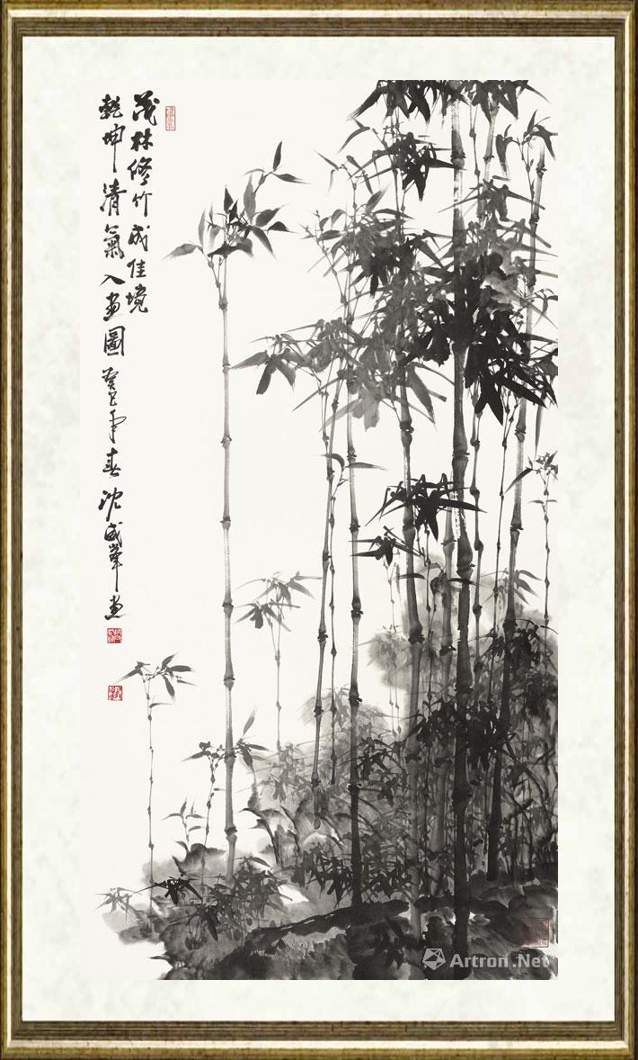 茂林修竹成佳境
乾坤清氣入画圖 癸巳年春沈成峯画
Artron.Net